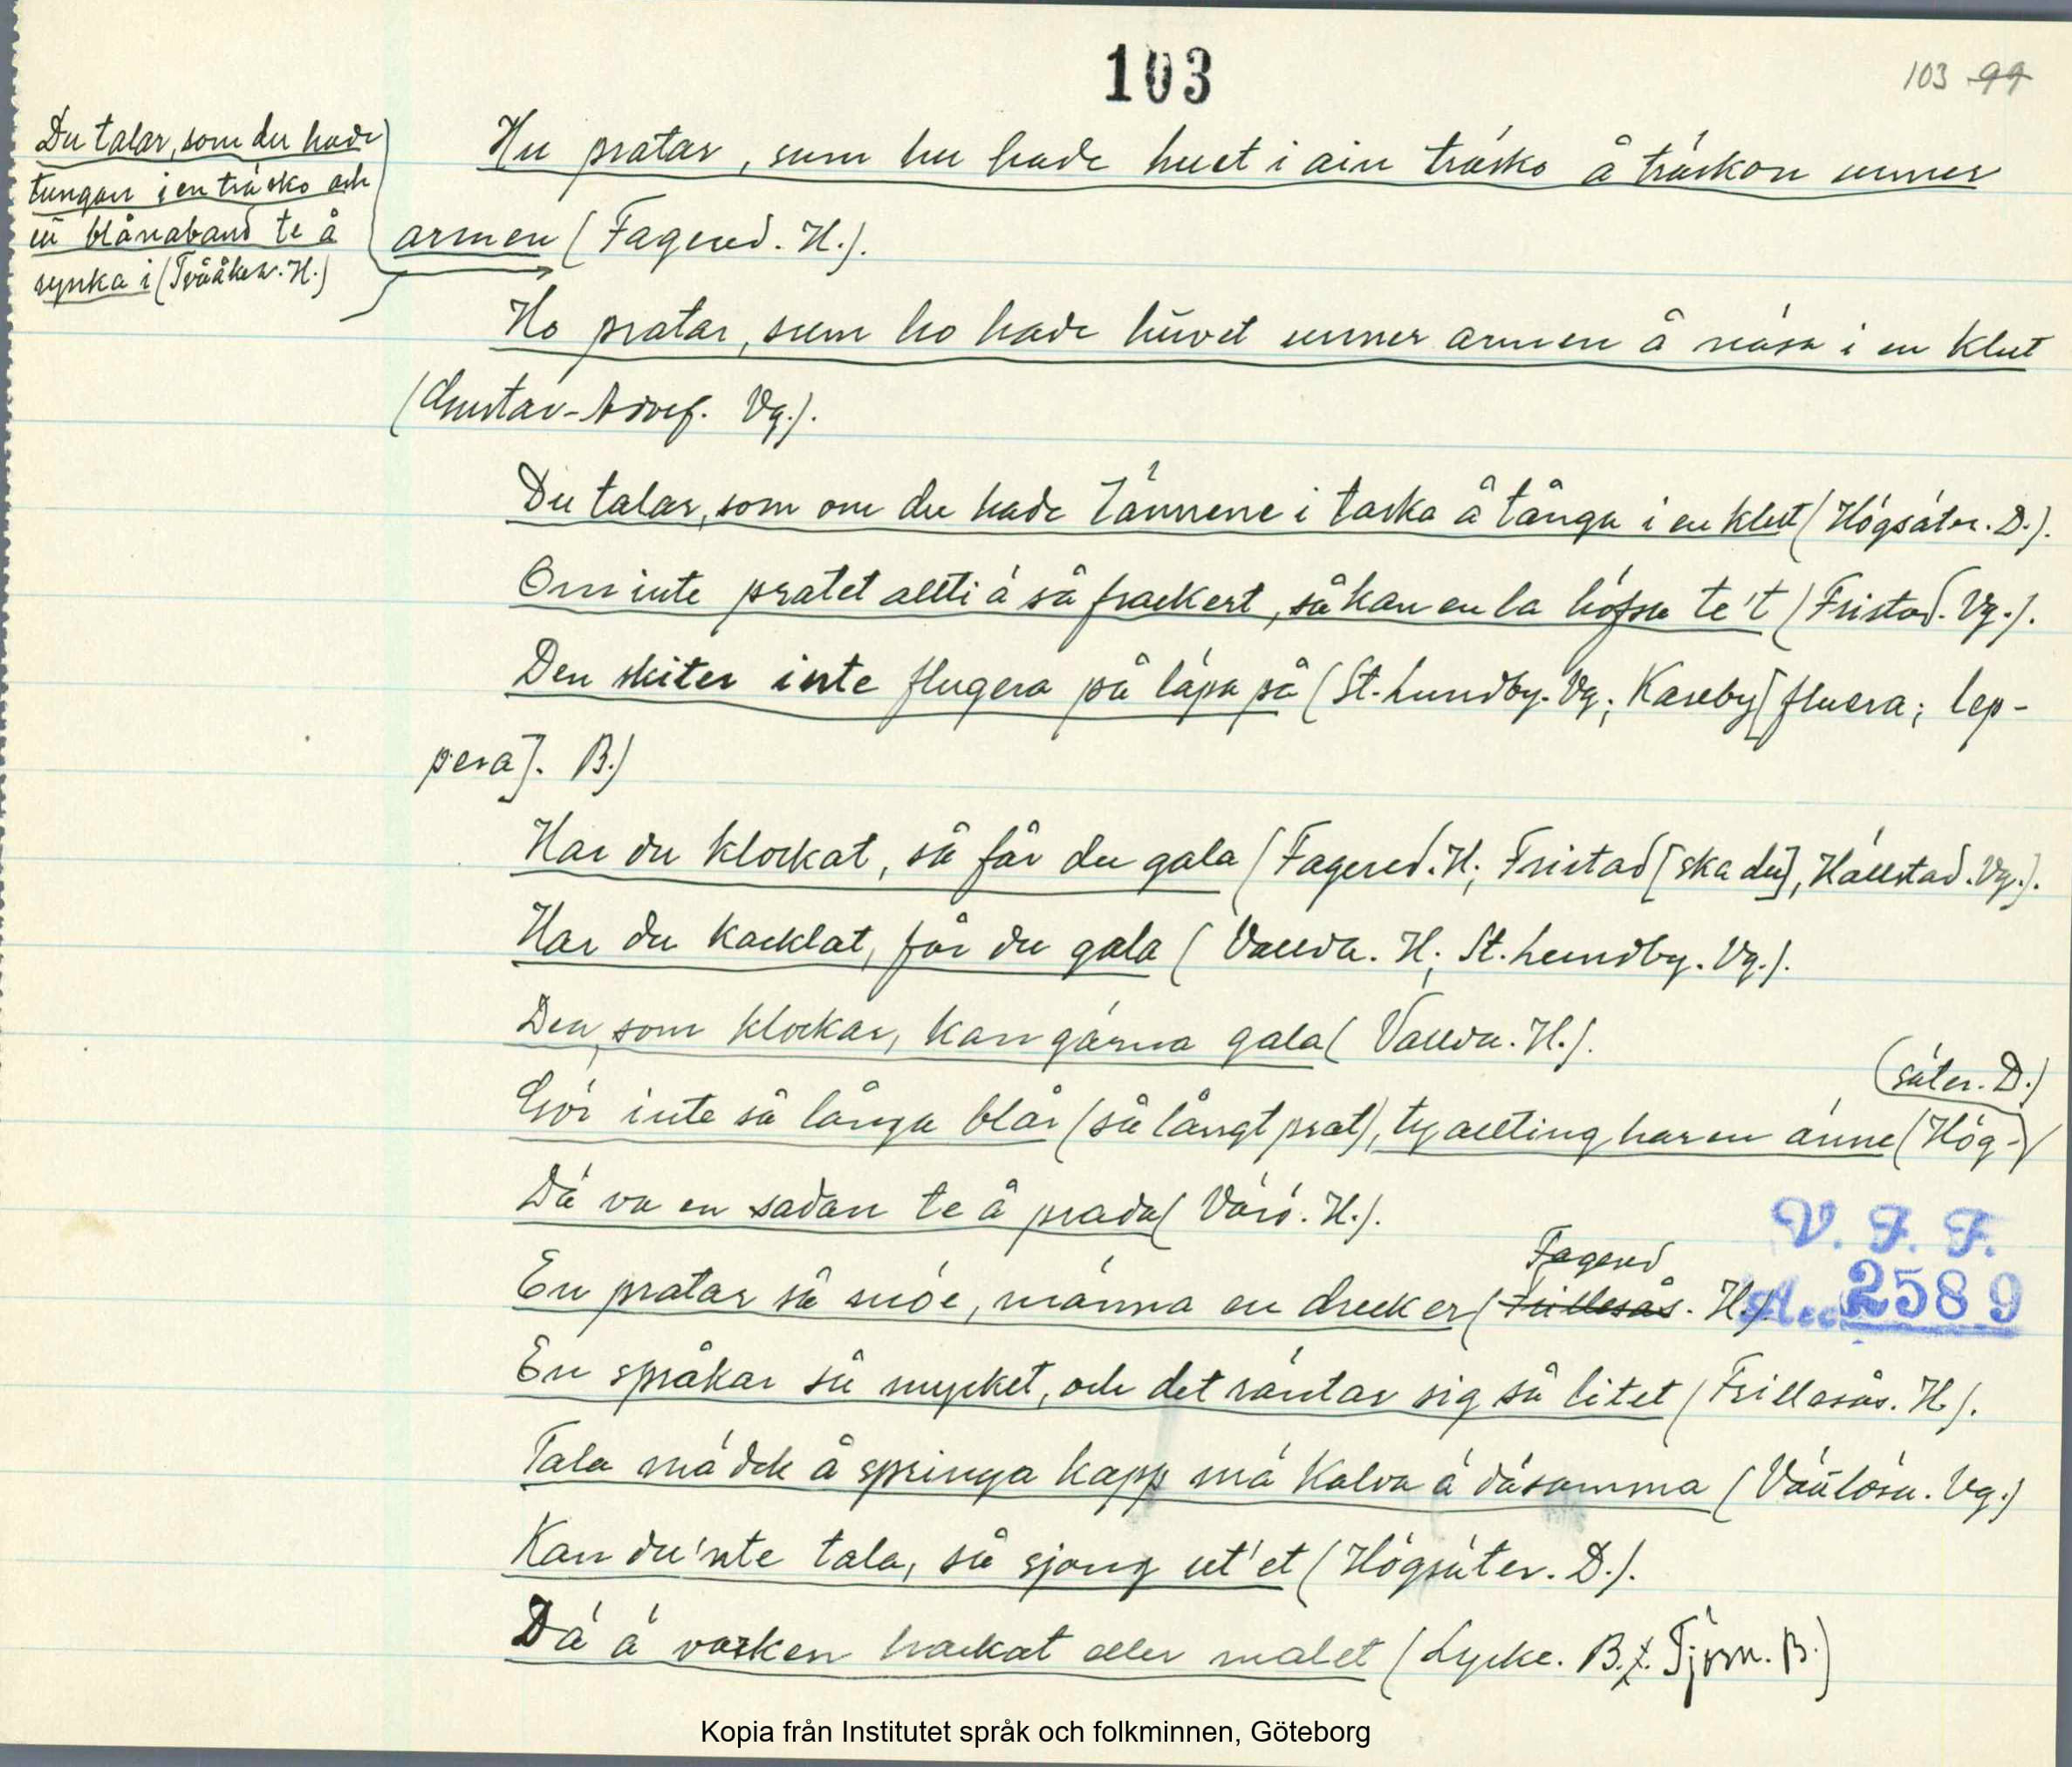 103
103 99
Du talar, som du hade
tungan i en träsko och
en blånaband te å
synka i (Tvååker. H.)
Hu pratar, sum hu hade huet i ain träsko å träskon unner
armen (Fagered. H.).
Ho pratar, sum ho hade hüvet unner armen å näsa i en klut
(Gustav-Adolf. Vg.).
Du talar, som om du hade Tännene i taska å tånga i en klut (Högsäter. D.).
Om inte pratet allti ä så frackert, så kan en la höfsa te't (Fristad. Vg.).
Den skiter inte flugera på läpa på (St. Lundby. Vg; Kareby [fluera; lep-
pera]. B.)
Har du klockat, så får du gala (Fagered. H; Fristad [ska du], Hällstad. Vg.).
Har du kacklat, får du gala (Vallda. H; St. Lundby. Vg.).
Den, som klockar, kan gärna gala (Vallda. H.).
(säter. D.)
Gör inte så långa blår (så långt prat), ty allting har en änne (Hög-
Dä va en sadan te å prada (Värö. H.).
V. F. F.
Fagered
En pratar så snöe, männa en drucker (Frillesås. H.).
Acc. 2589
En språkar så mycket, och det räntar sig så litet (Frillesås. H.).
Tala mä dek å springa kapp mä Kalva ä däsamma (Vänlösa. Vg.)
Kan du'nte tala, så sjong ut'et (Högsäter. D.).
Dä ä varken hackat eller malet (Lycke. B. Tjörn. B.)
Kopia från Institutet språk och folkminnen, Göteborg